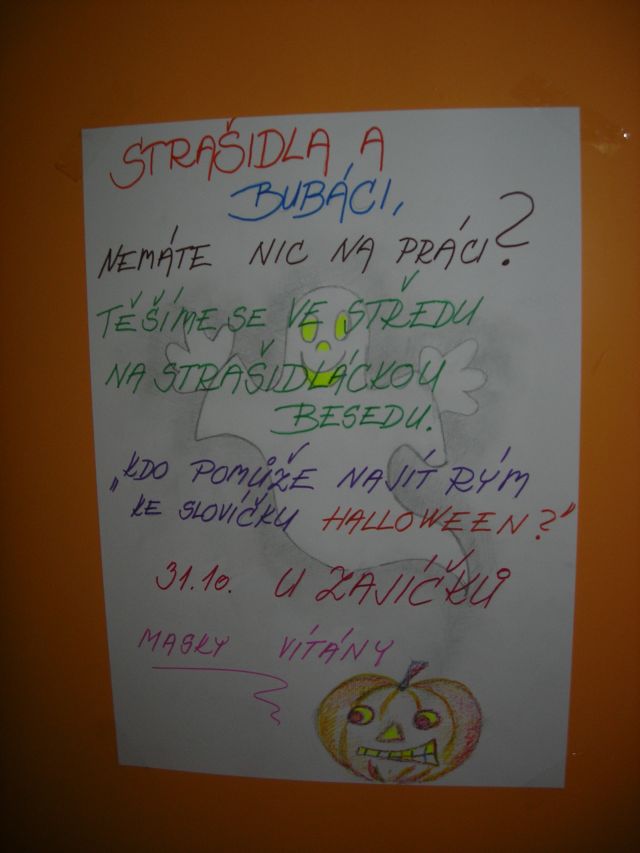 STRAŠIDLA A
BUBÁCI,
NEMÁTE NIC NA PRÁCI?
TĚŠÍME SE VE STŘEDU
NA STRAŠIDLÁCKOU
BESEDU.
„KDO POMŮŽE NAJÍT RÝM
KE SLOVÍČKU HALLOWEEN?"
31.10. U ZAJÍČKŮ
MASKY VÍTÁNY